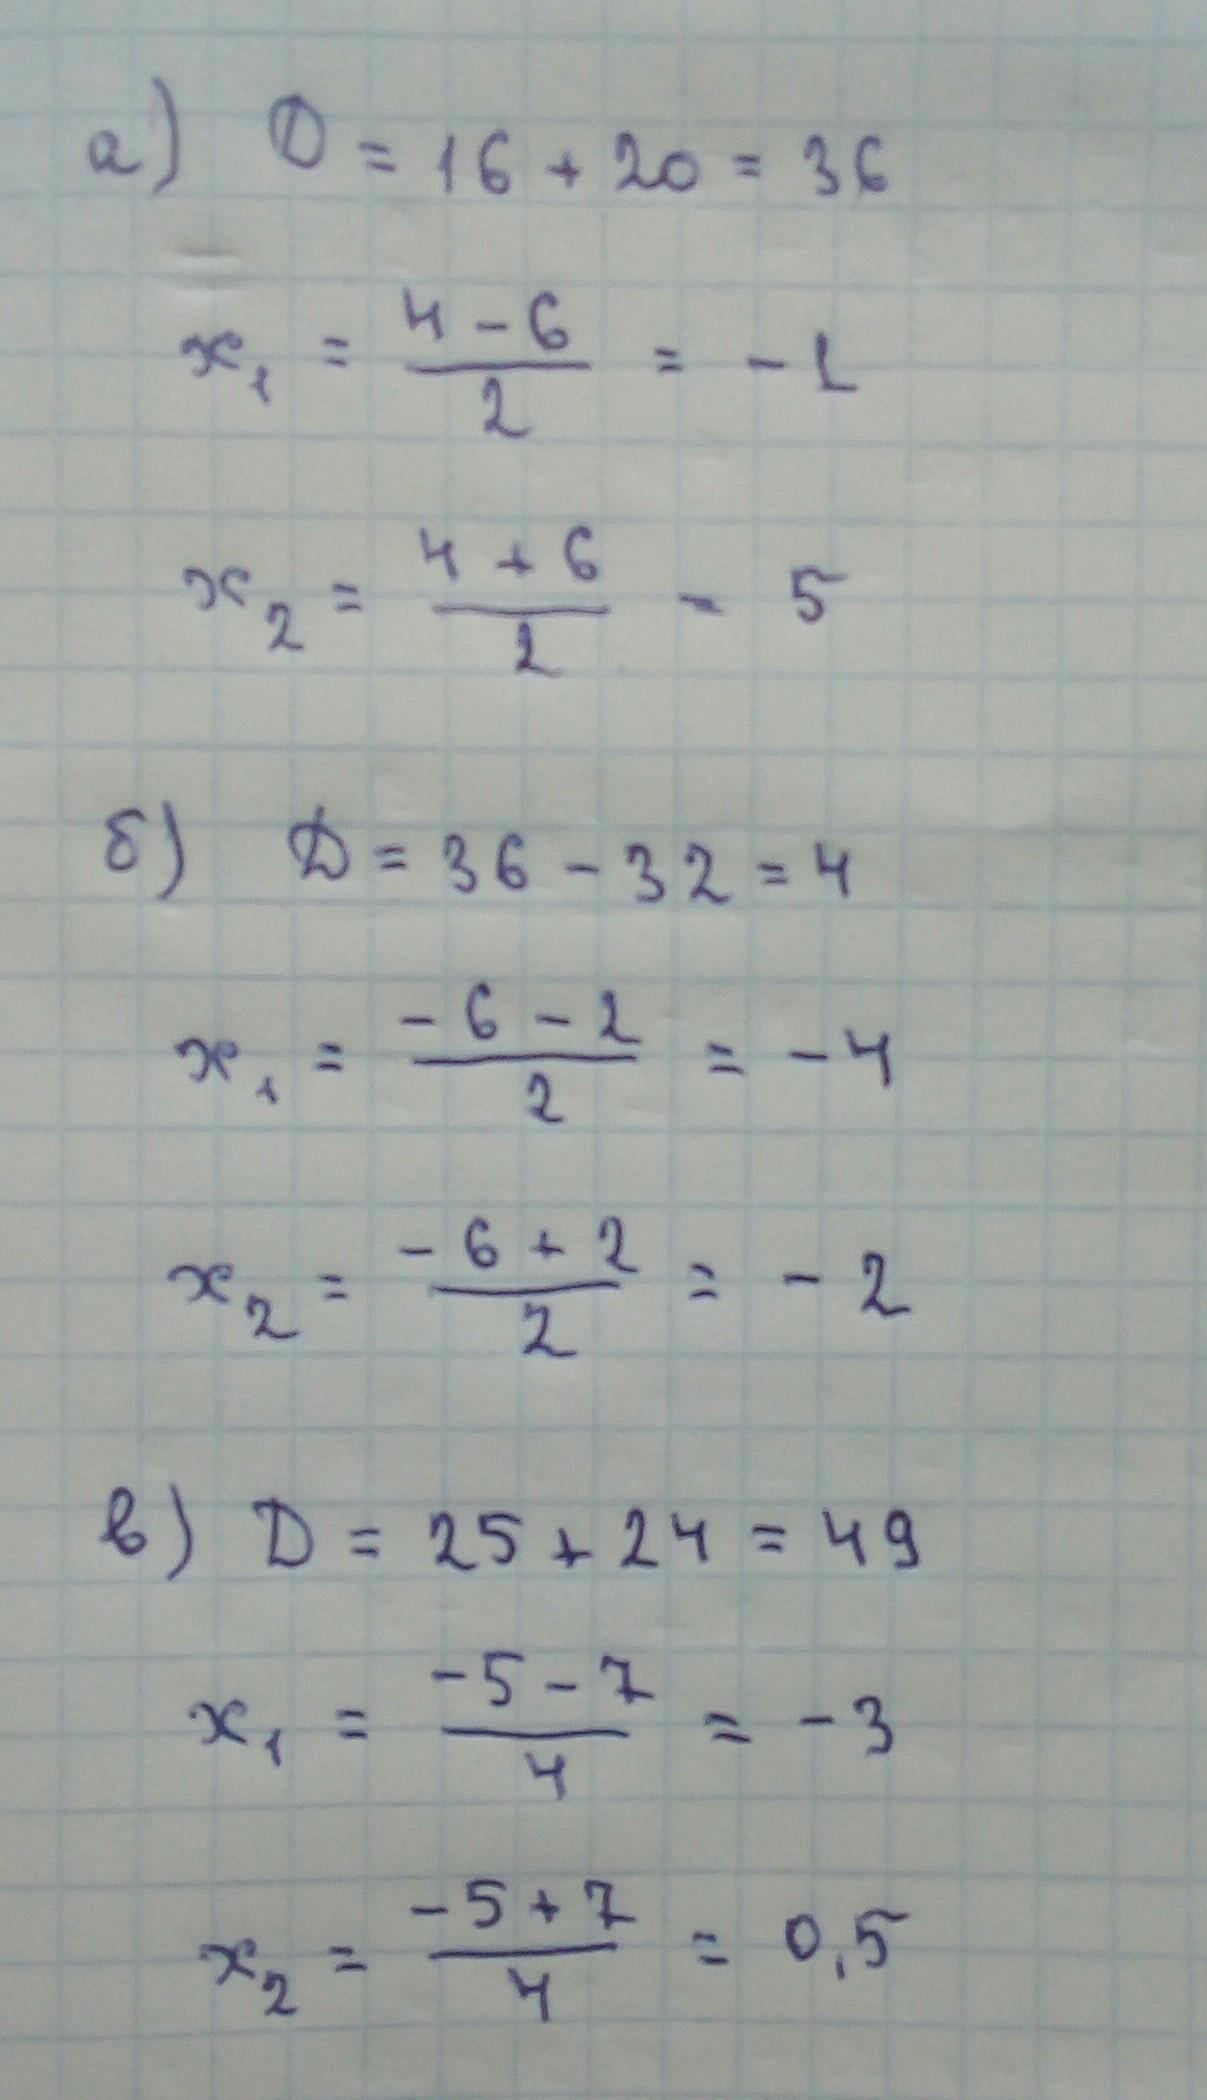 а) D = 16 + 20 = 36
x₁ = (4 - 6)/2 = -1
x₂ = (4 + 6)/2 = 5
б) D = 36 - 32 = 4
x₁ = (-6 - 2)/2 = -4
x₂ = (-6 + 2)/2 = -2
в) D = 25 + 24 = 49
x₁ = (-5 - 7)/4 = -3
x₂ = (-5 + 7)/4 = 0,5